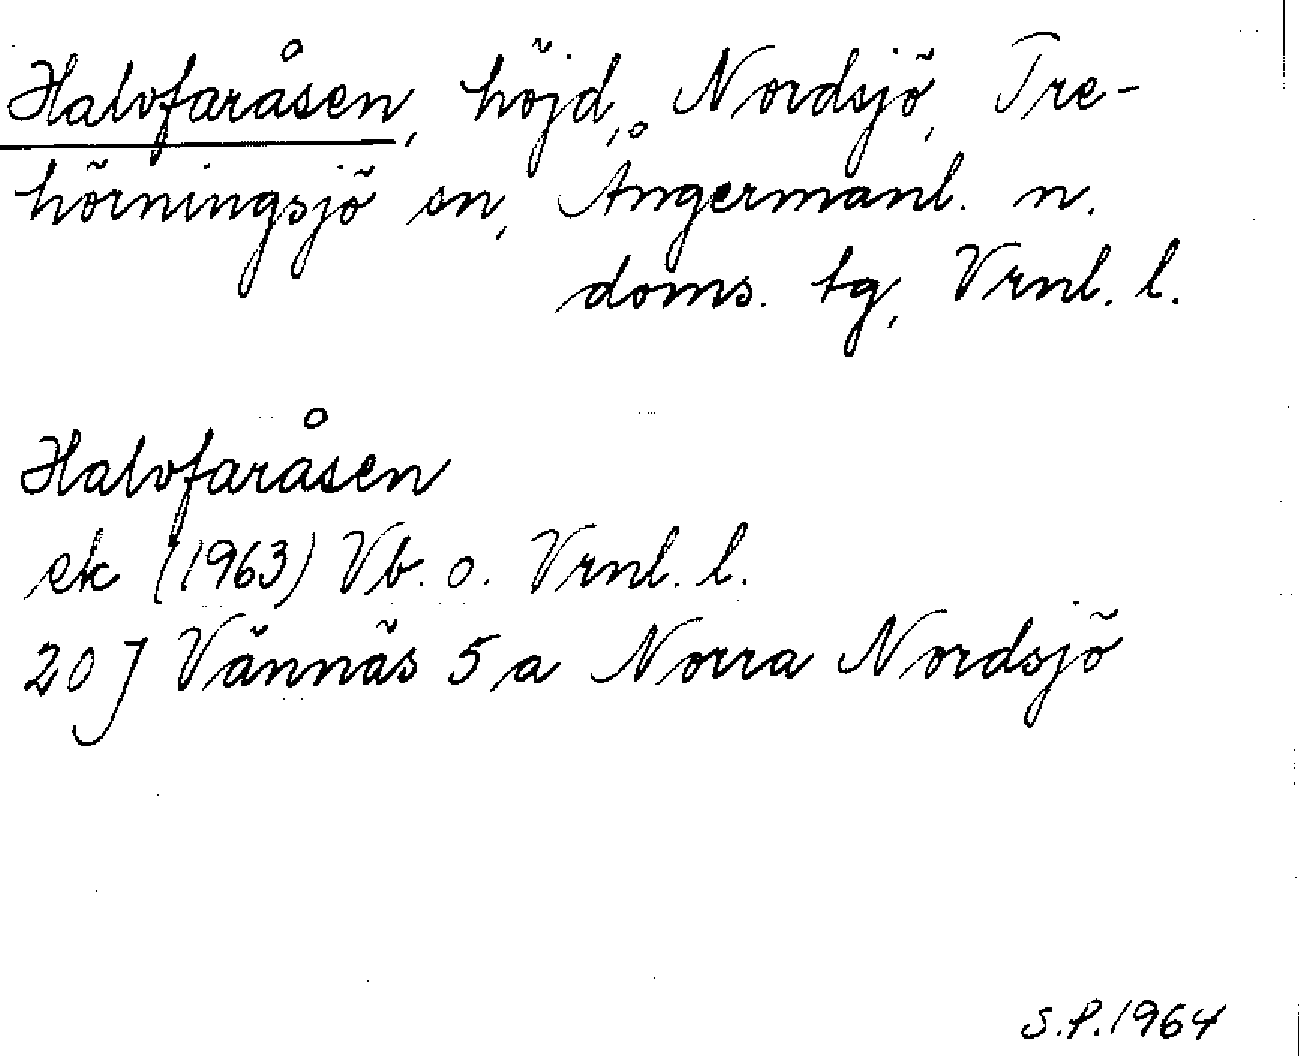 Halvfaråsen, höjd, Nordsjö, Tre-
hörningsjö sn, Ångermanl. n.
doms. tg, Vrnl. l.
Halvfaråsen
ek (1963) Vb. o. Vrnl. l.
20 J Vännäs 5 a Norra Nordsjö
S.P. 1964